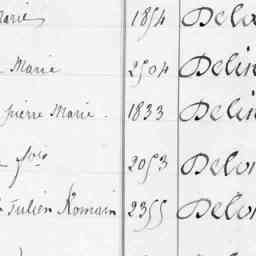 Marie 1854 Delo
Marie 2504 Delin
pierre Marie. 1833 Delin
fois 2053 Delo
Julien Romain 2355 Delo